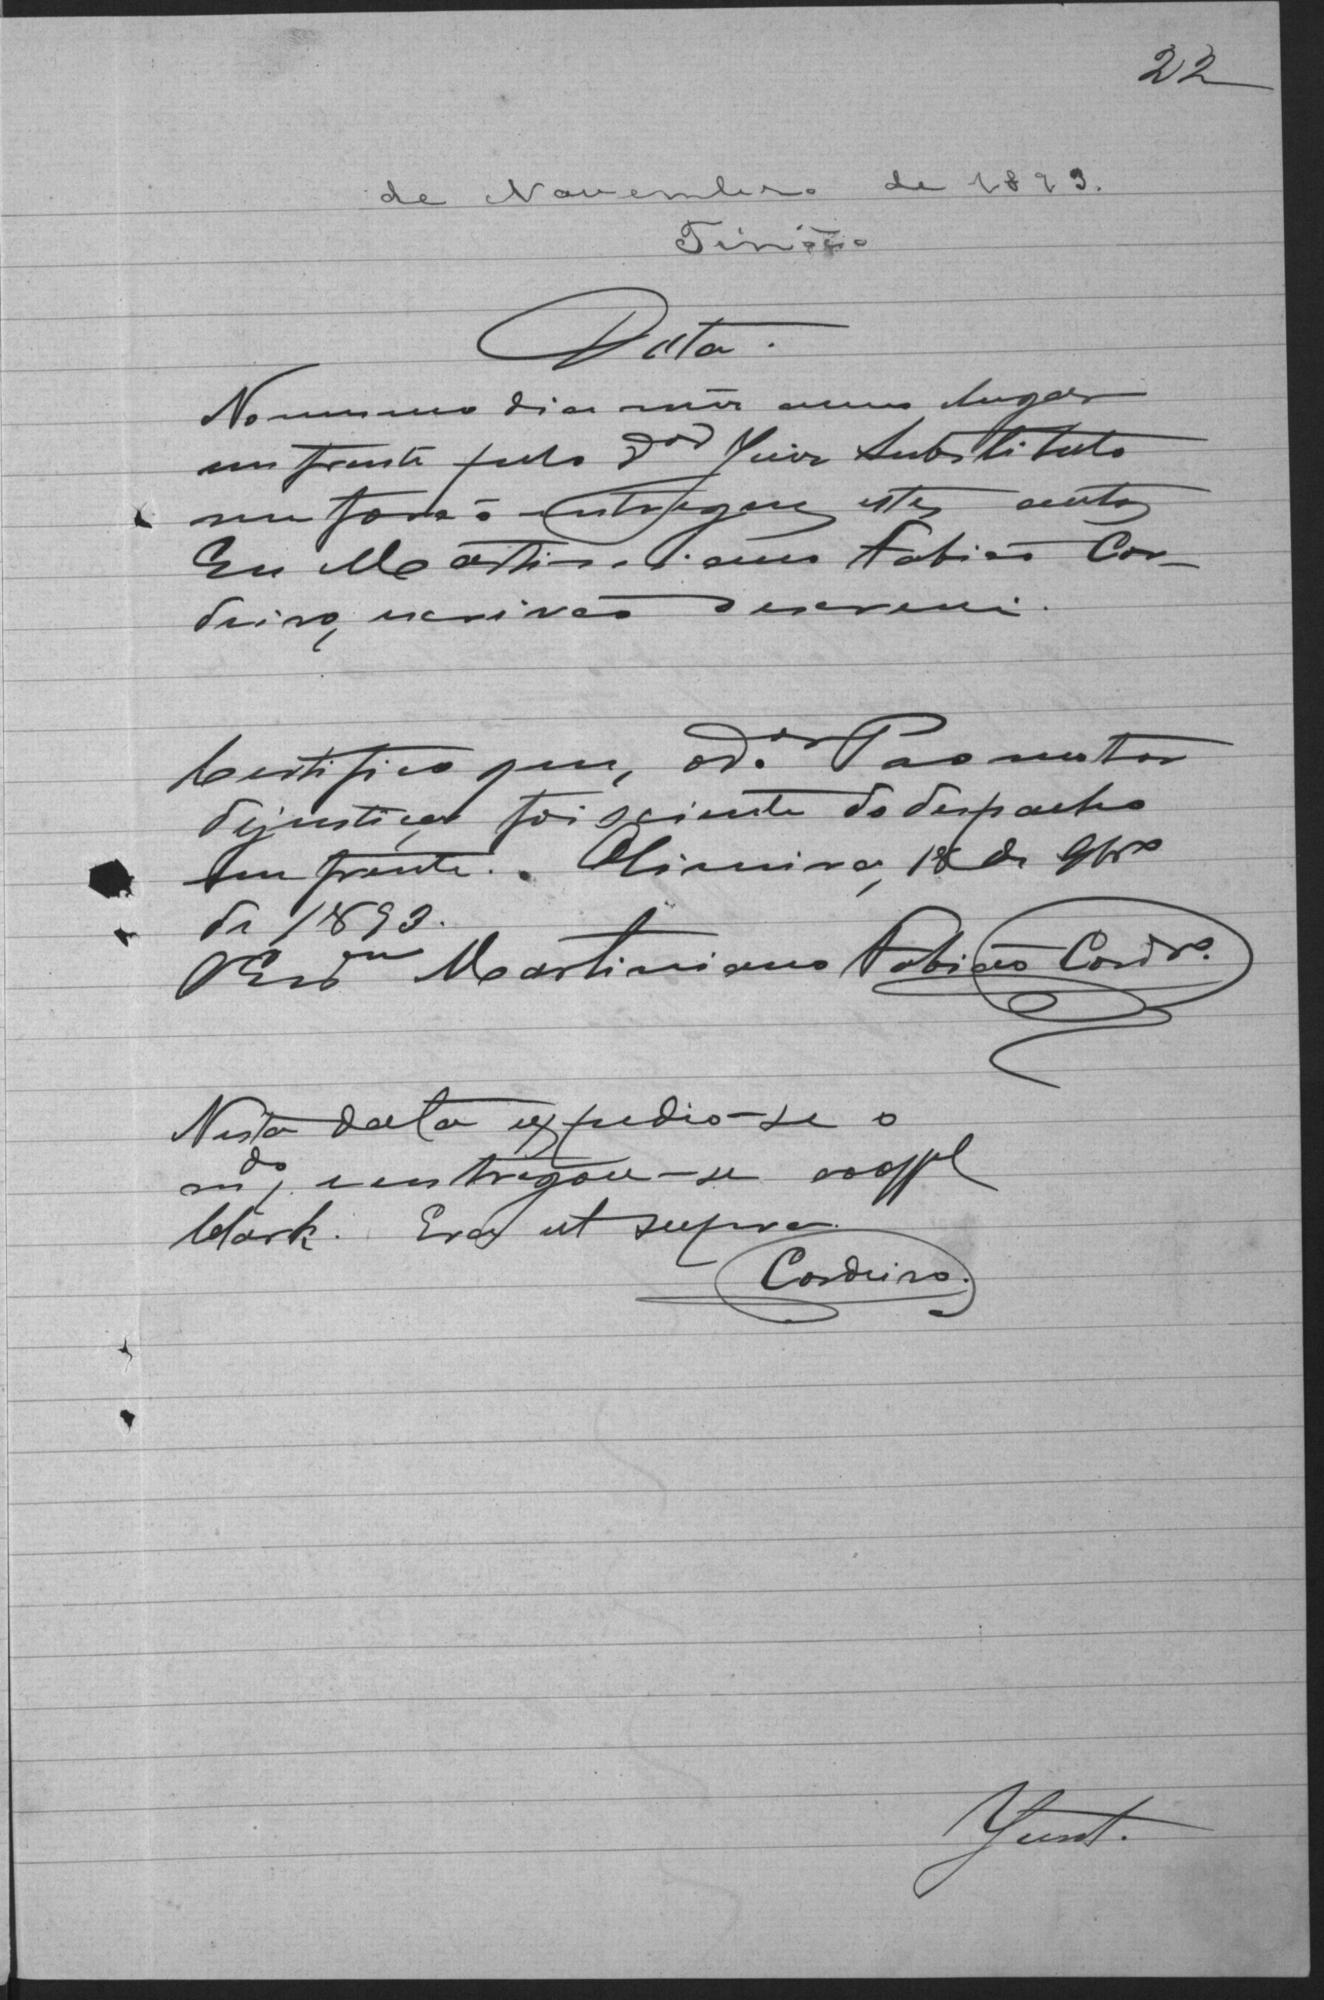 22
de Novembro de 1893.
Data.
No mesmo dia mez anno lugar
em frente pelo Dor Juiz Substituto
me forão entregues estes autos
Eu Martiniano Fabião Cor-
deiro, escrivão o escrevi.
Certifico que, o dor Promotor
de justiça foi sciente do despacho
em frente. 18 de 9bro
de 1893.
O Escam Martiniano Fabião Cordro.
Nesta data expedio-se o
mdo, e entregou-se ao offal
Clark. Era ut supra.
Cordeiro.
Junt.